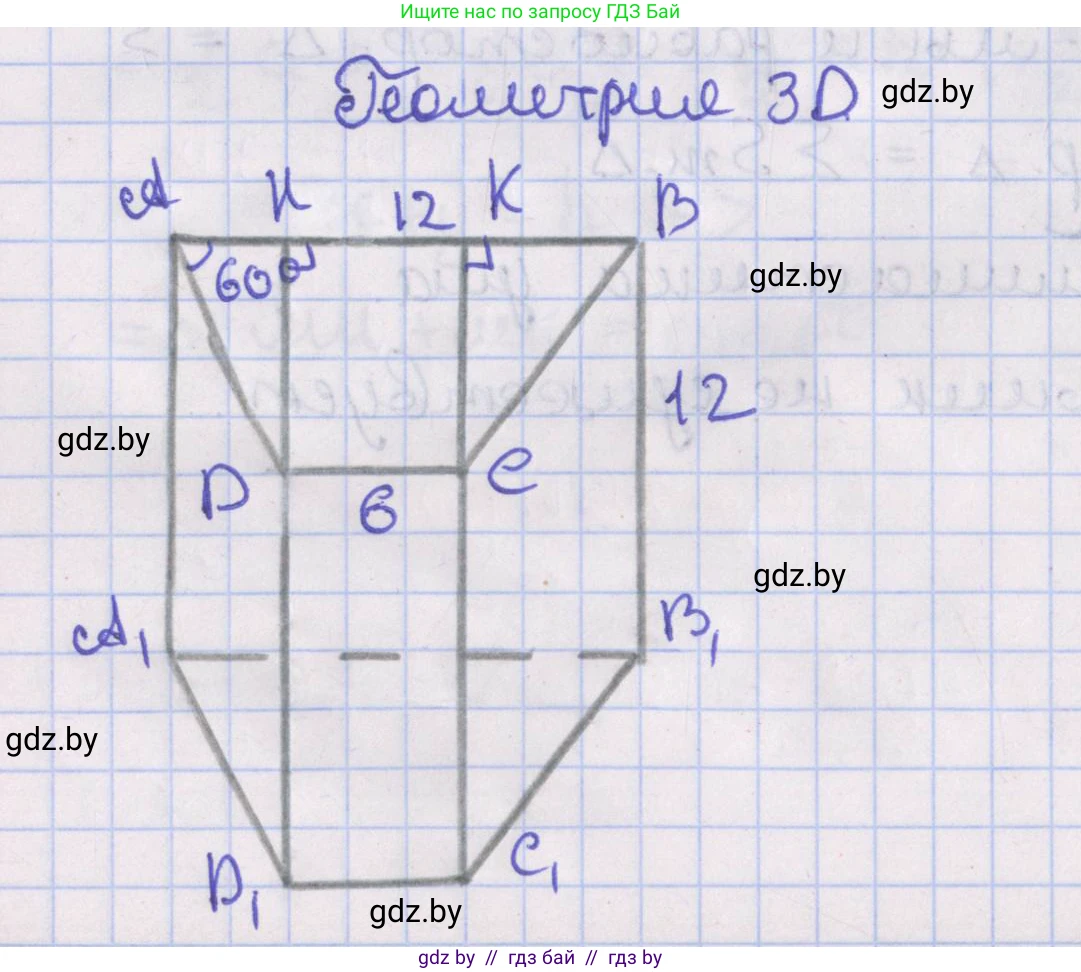 Ищите нас по запросу ГДЗ Бай
Геометрия 3D
gdz.by
A H 12 K B
60°
gdz.by
12
gdz.by
D C
6
gdz.by
A1 B1
gdz.by
D1 C1
gdz.by
gdz by // гдз бай // gdz by